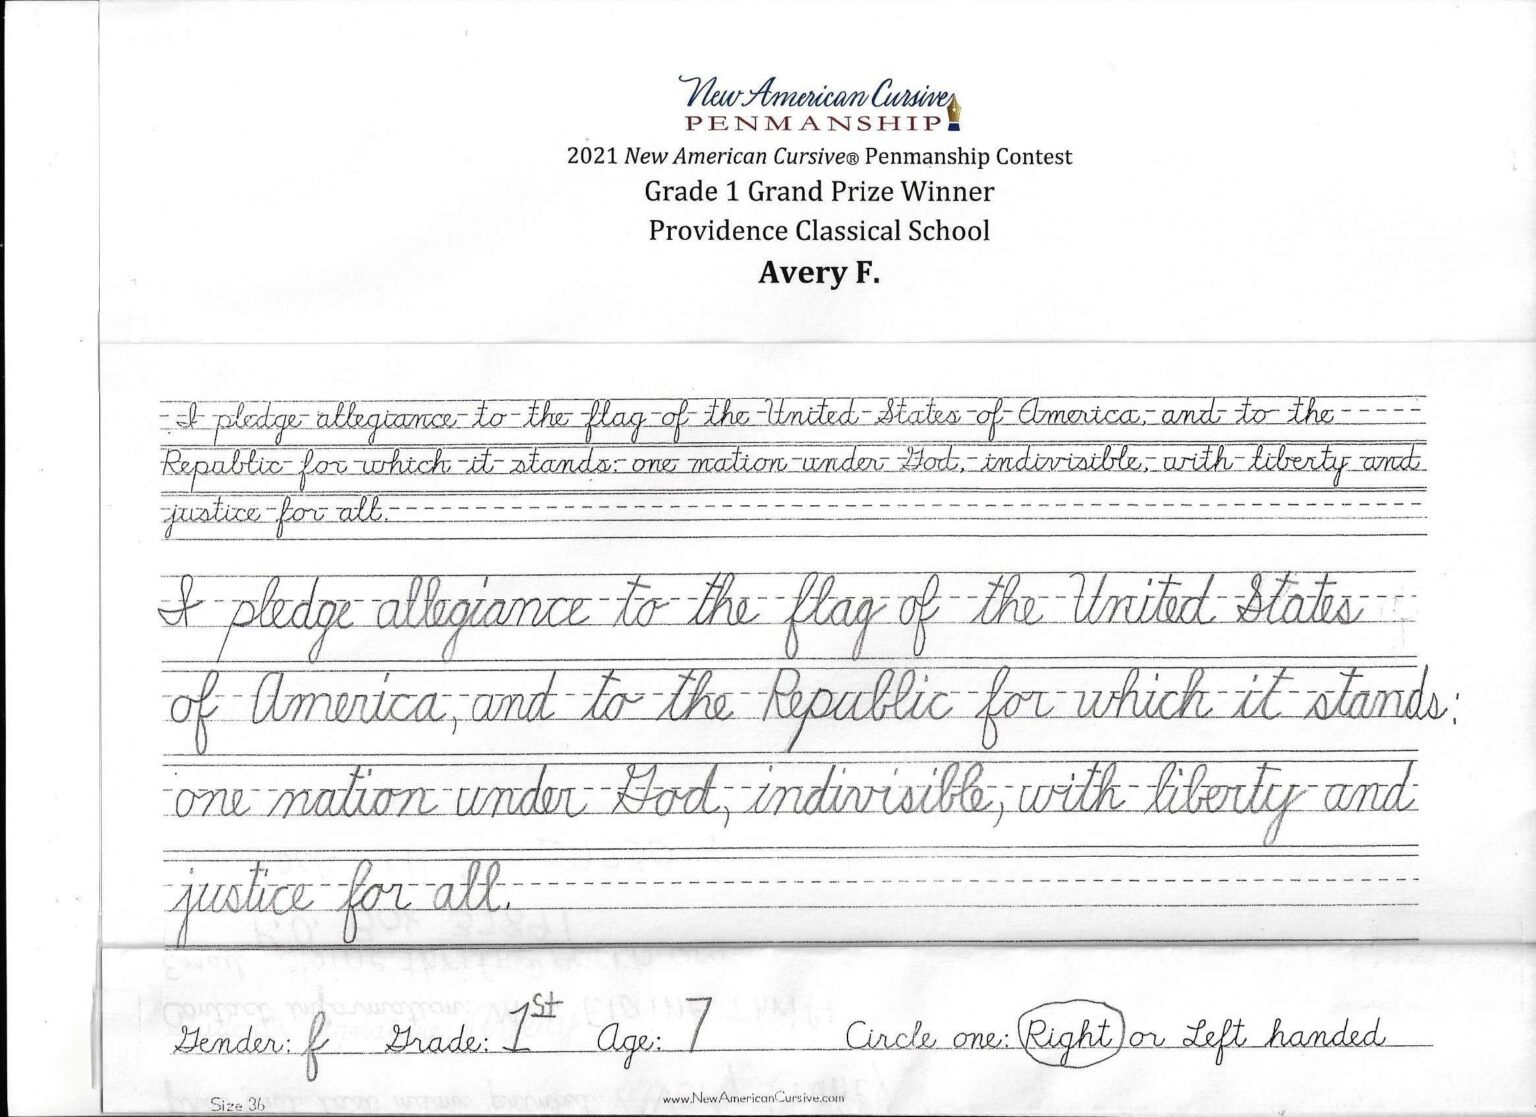 New American Cursive
PENMANSHIP
2021 New American Cursive® Penmanship Contest
Grade 1 Grand Prize Winner
Providence Classical School
Avery F.
I pledge allegiance to the flag of the United States of America, and to the
Republic for which it stands: one nation under God, indivisible, with liberty and
justice for all.
I pledge allegiance to the flag of the United States
of America, and to the Republic for which it stands:
one nation under God, indivisible, with liberty and
justice for all.
Gender: f Grade: 1st Age: 7 Circle one: Right or Left handed
Size 36 www.NewAmericanCursive.com